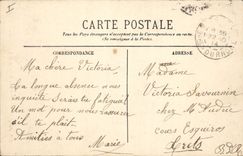 CARTE POSTALE
Tous les Pays étrangers n'acceptent pas la Correspondance au verso
(Se renseigner à la Poste).
CORRESPONDANCE
Ma chère Victoria
La longue absence nous
inquiète Serais tu fatigué
Un mot pour nous rassurer
s'il te plait
Amitiés à tous
Marie
ADRESSE
Madame
Victoria Savournin
chez Mr
cours Esquiros